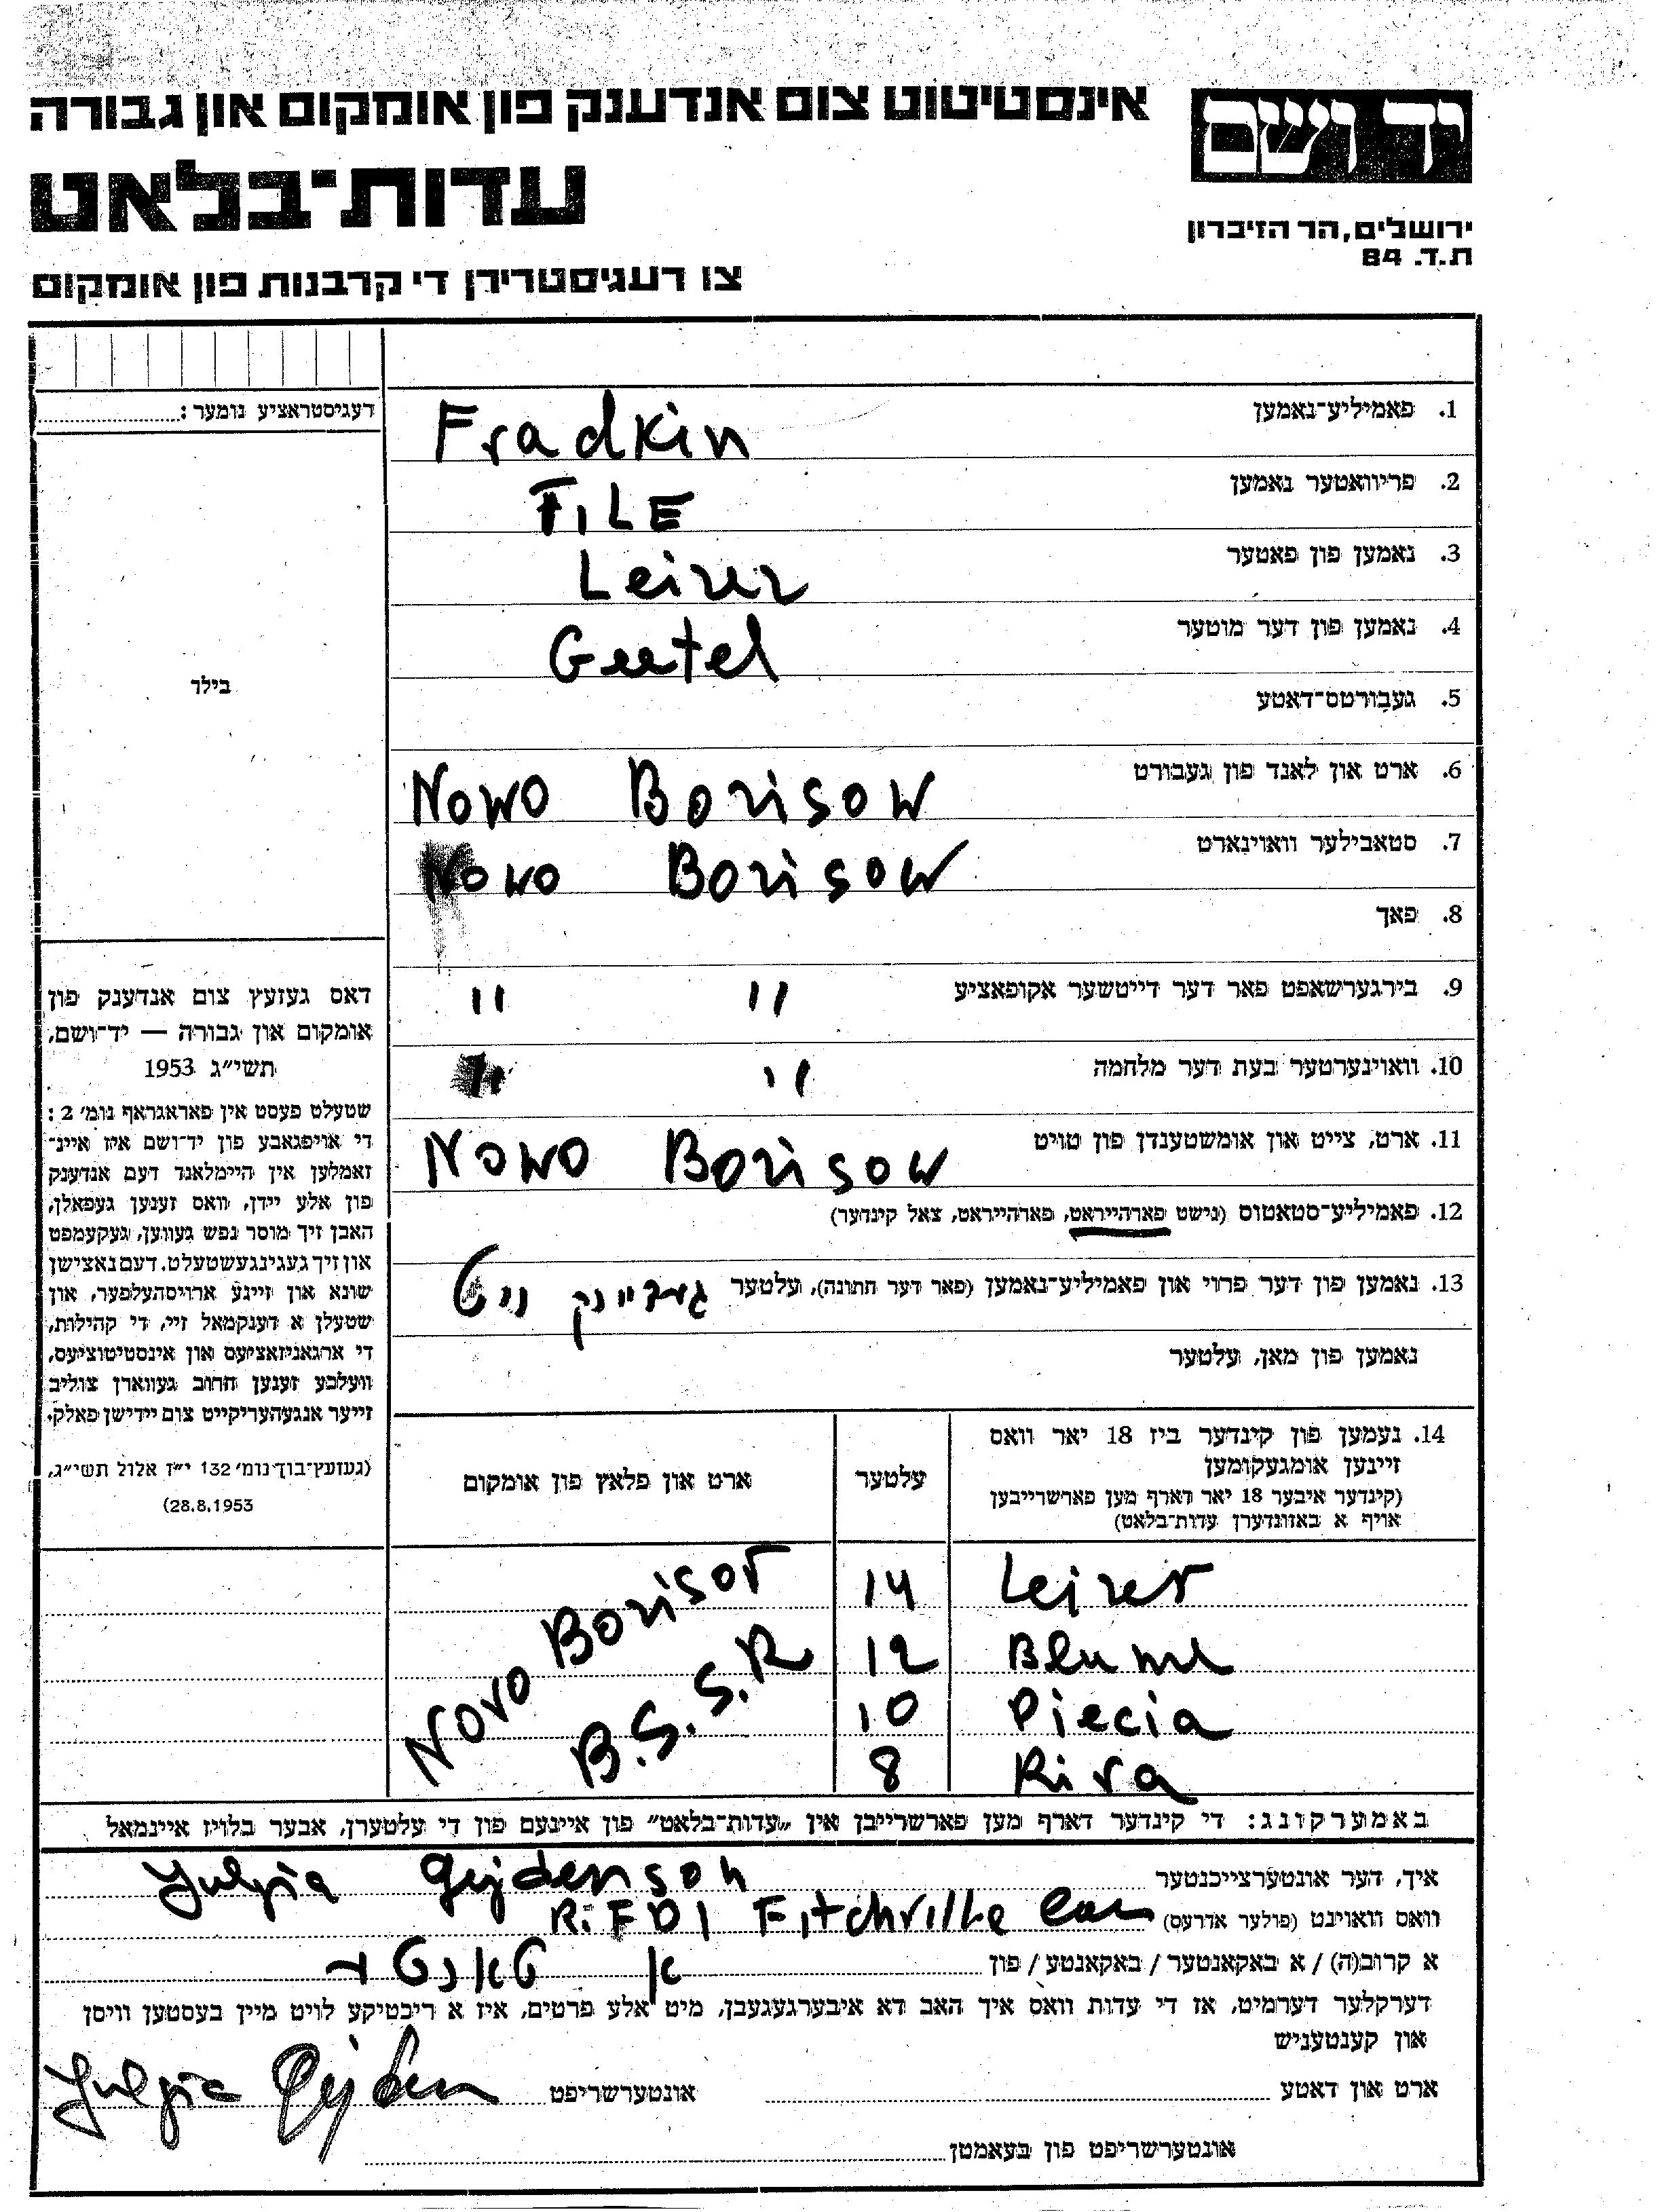 יד ושם
אינסטיטוט צום אנדענק פון אומקום און גבורה
עדות־בלאט
ירושלים, הר הזיכרון
ת.ד. 84
צו רעגיסטרירן די קרבנות פון אומקום
רעגיסטראציע נומער:
בילד
דאס געזעץ צום אנדענק פון
אומקום און גבורה — יד־ושם,
תשי״ג 1953
שטעלט פעסט אין פאראגראף נומ׳ 2:
די אויפגאבע פון יד־ושם איז איינ־
זאמלען אין היימלאנד דעם אנדענק
פון אלע יידן, וואס זענען געפאלן,
האבן זיך מוסר נפש געווען, געקעמפט
און זיך געגינגעשטעלט. דעם נאצישן
שונא און זייגע ארויסהעלפער, און
שטעלן א דענקמאל זיי, די קהילות,
די ארגאניזאציעס און אינסטיטוציעס,
וועלכע זענען חרוב געווארן צוליב
זייער אנגעהעריקייט צום יידישן פאלק.
(געזעץ־בוך נומ׳ 132 י״ז אלול תשי״ג,
28.8.1953)
1. פאמיליע־נאמען Fradkin
2. פריוואטער נאמען FILE
3. נאמען פון פאטער Leizer
4. נאמען פון דער מוטער Geetel
5. געבורטס־דאטע
6. ארט און לאנד פון געבורט Nowo Borisow
7. סטאבילער וואוינארט Nowo Borisow
8. פאך
9. בירגערשאפט פאר דער דייטשער אקופאציע " "
10. וואוינערטער בעת דער מלחמה " "
11. ארט, צייט און אומשטענדן פון טויט Nowo Borisow
12. פאמיליע־סטאטוס (נישט פארהייראט, פארהייראט, צאל קינדער)
13. נאמען פון דער פרוי און פאמיליע־נאמען (פאר דער חתונה), עלטער געדיינק ניט
נאמען פון מאן, עלטער
14. נעמען פון קינדער ביז 18 יאר וואס
זיינען אומגעקומען
(קינדער איבער 18 יאר דארף מען פארשרייבען
אויף א באזונדערן עדות־בלאט)
עלטער
ארט און פלאץ פון אומקום
Leizer 14
Blume 12
Piecia 10
Riva 8
Novo Borisov
B.S.S.R
באמערקונג: די קינדער דארף מען פארשרייבן אין „עדות־בלאט״ פון איינעם פון די עלטערן, אבער בלויז איינמאל
איך, דער אונטערצייכנטער Julpia Gejdenson
וואס וואוינט (פולער אדרעס) R.FD1 Fitchville Con
א קרוב(ה) / א באקאנטער / באקאנטע / פון א טאנטע
דערקלער דערמיט, אז די עדות וואס איך האב דא איבערגעגעבן, מיט אלע פרטים, איז א ריכטיקע לויט מיין בעסטען וויסן
און קענטעניש
ארט און דאטע אונטערשריפט Julpia Gejden
אונטערשריפט פון בעאמטן